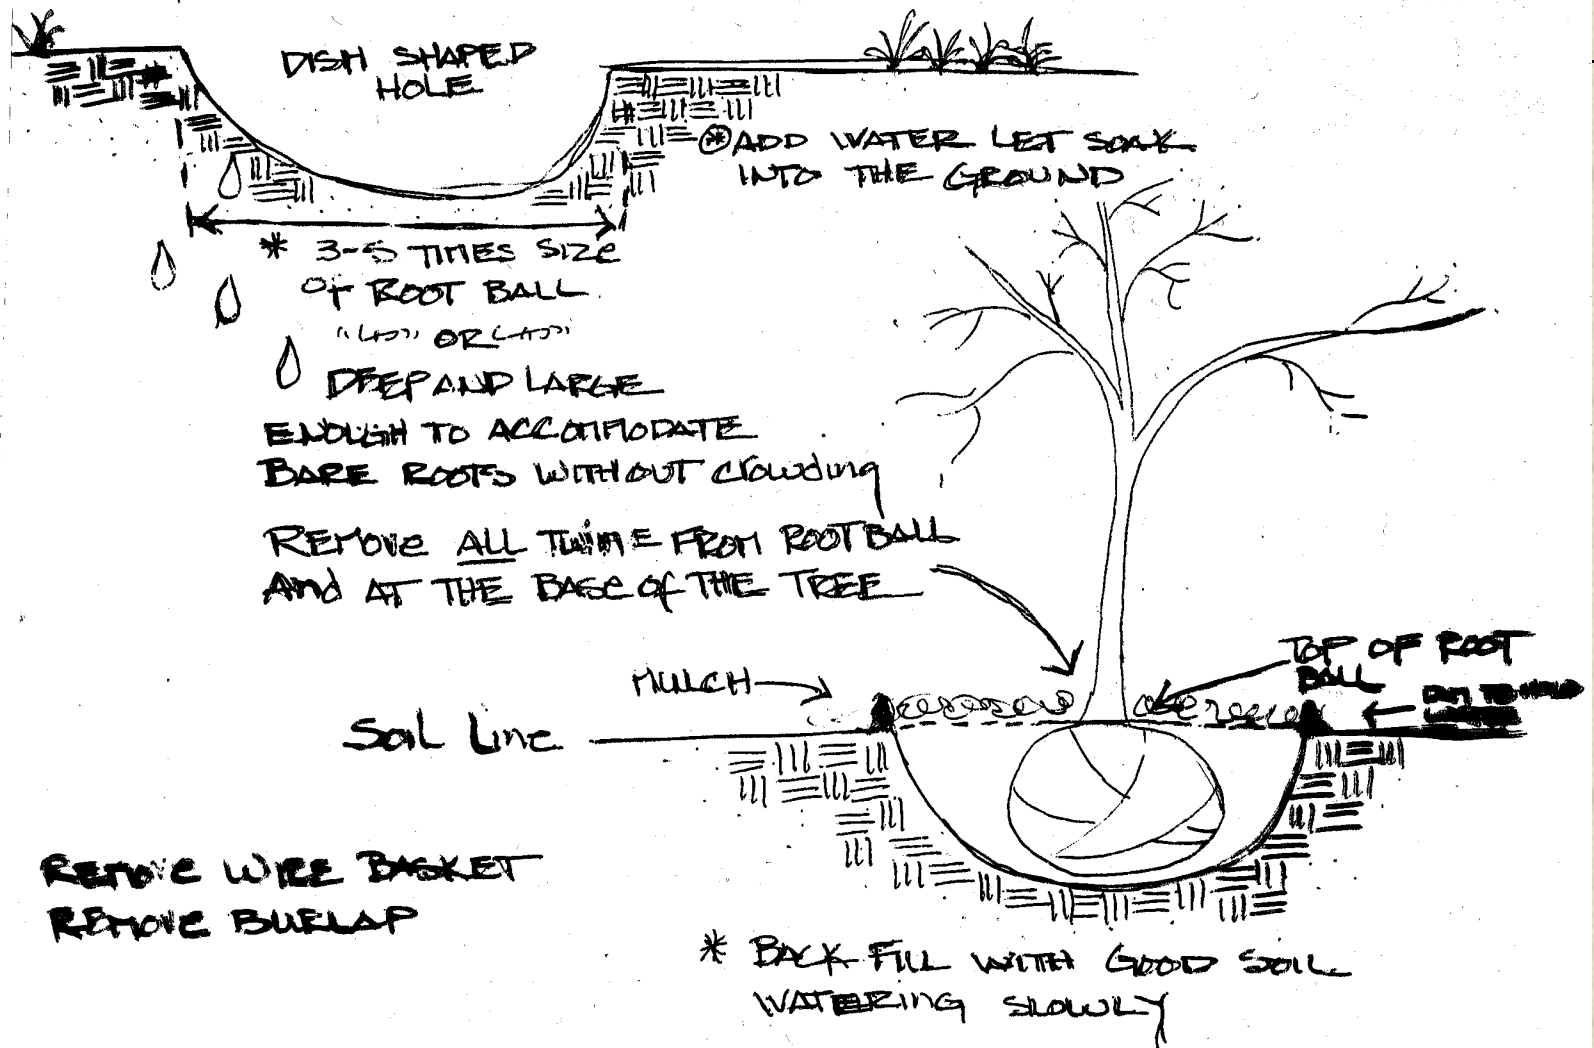 DISH SHAPED
HOLE
* ADD WATER LET SOAK
INTO THE GROUND
* 3-5 TIMES SIZE
OF ROOT BALL
OR
DEEP AND LARGE
ENOUGH TO ACCOMMODATE
BARE ROOTS WITHOUT crowding
REMOVE ALL TWINE FROM ROOTBALL
And AT THE BASE of THE TREE
TOP OF ROOT
BALL
MULCH
TO HOLD
Soil Line
REMOVE WIRE BASKET
REMOVE BURLAP
* BACK FILL WITH GOOD SOIL
WATERING SLOWLY